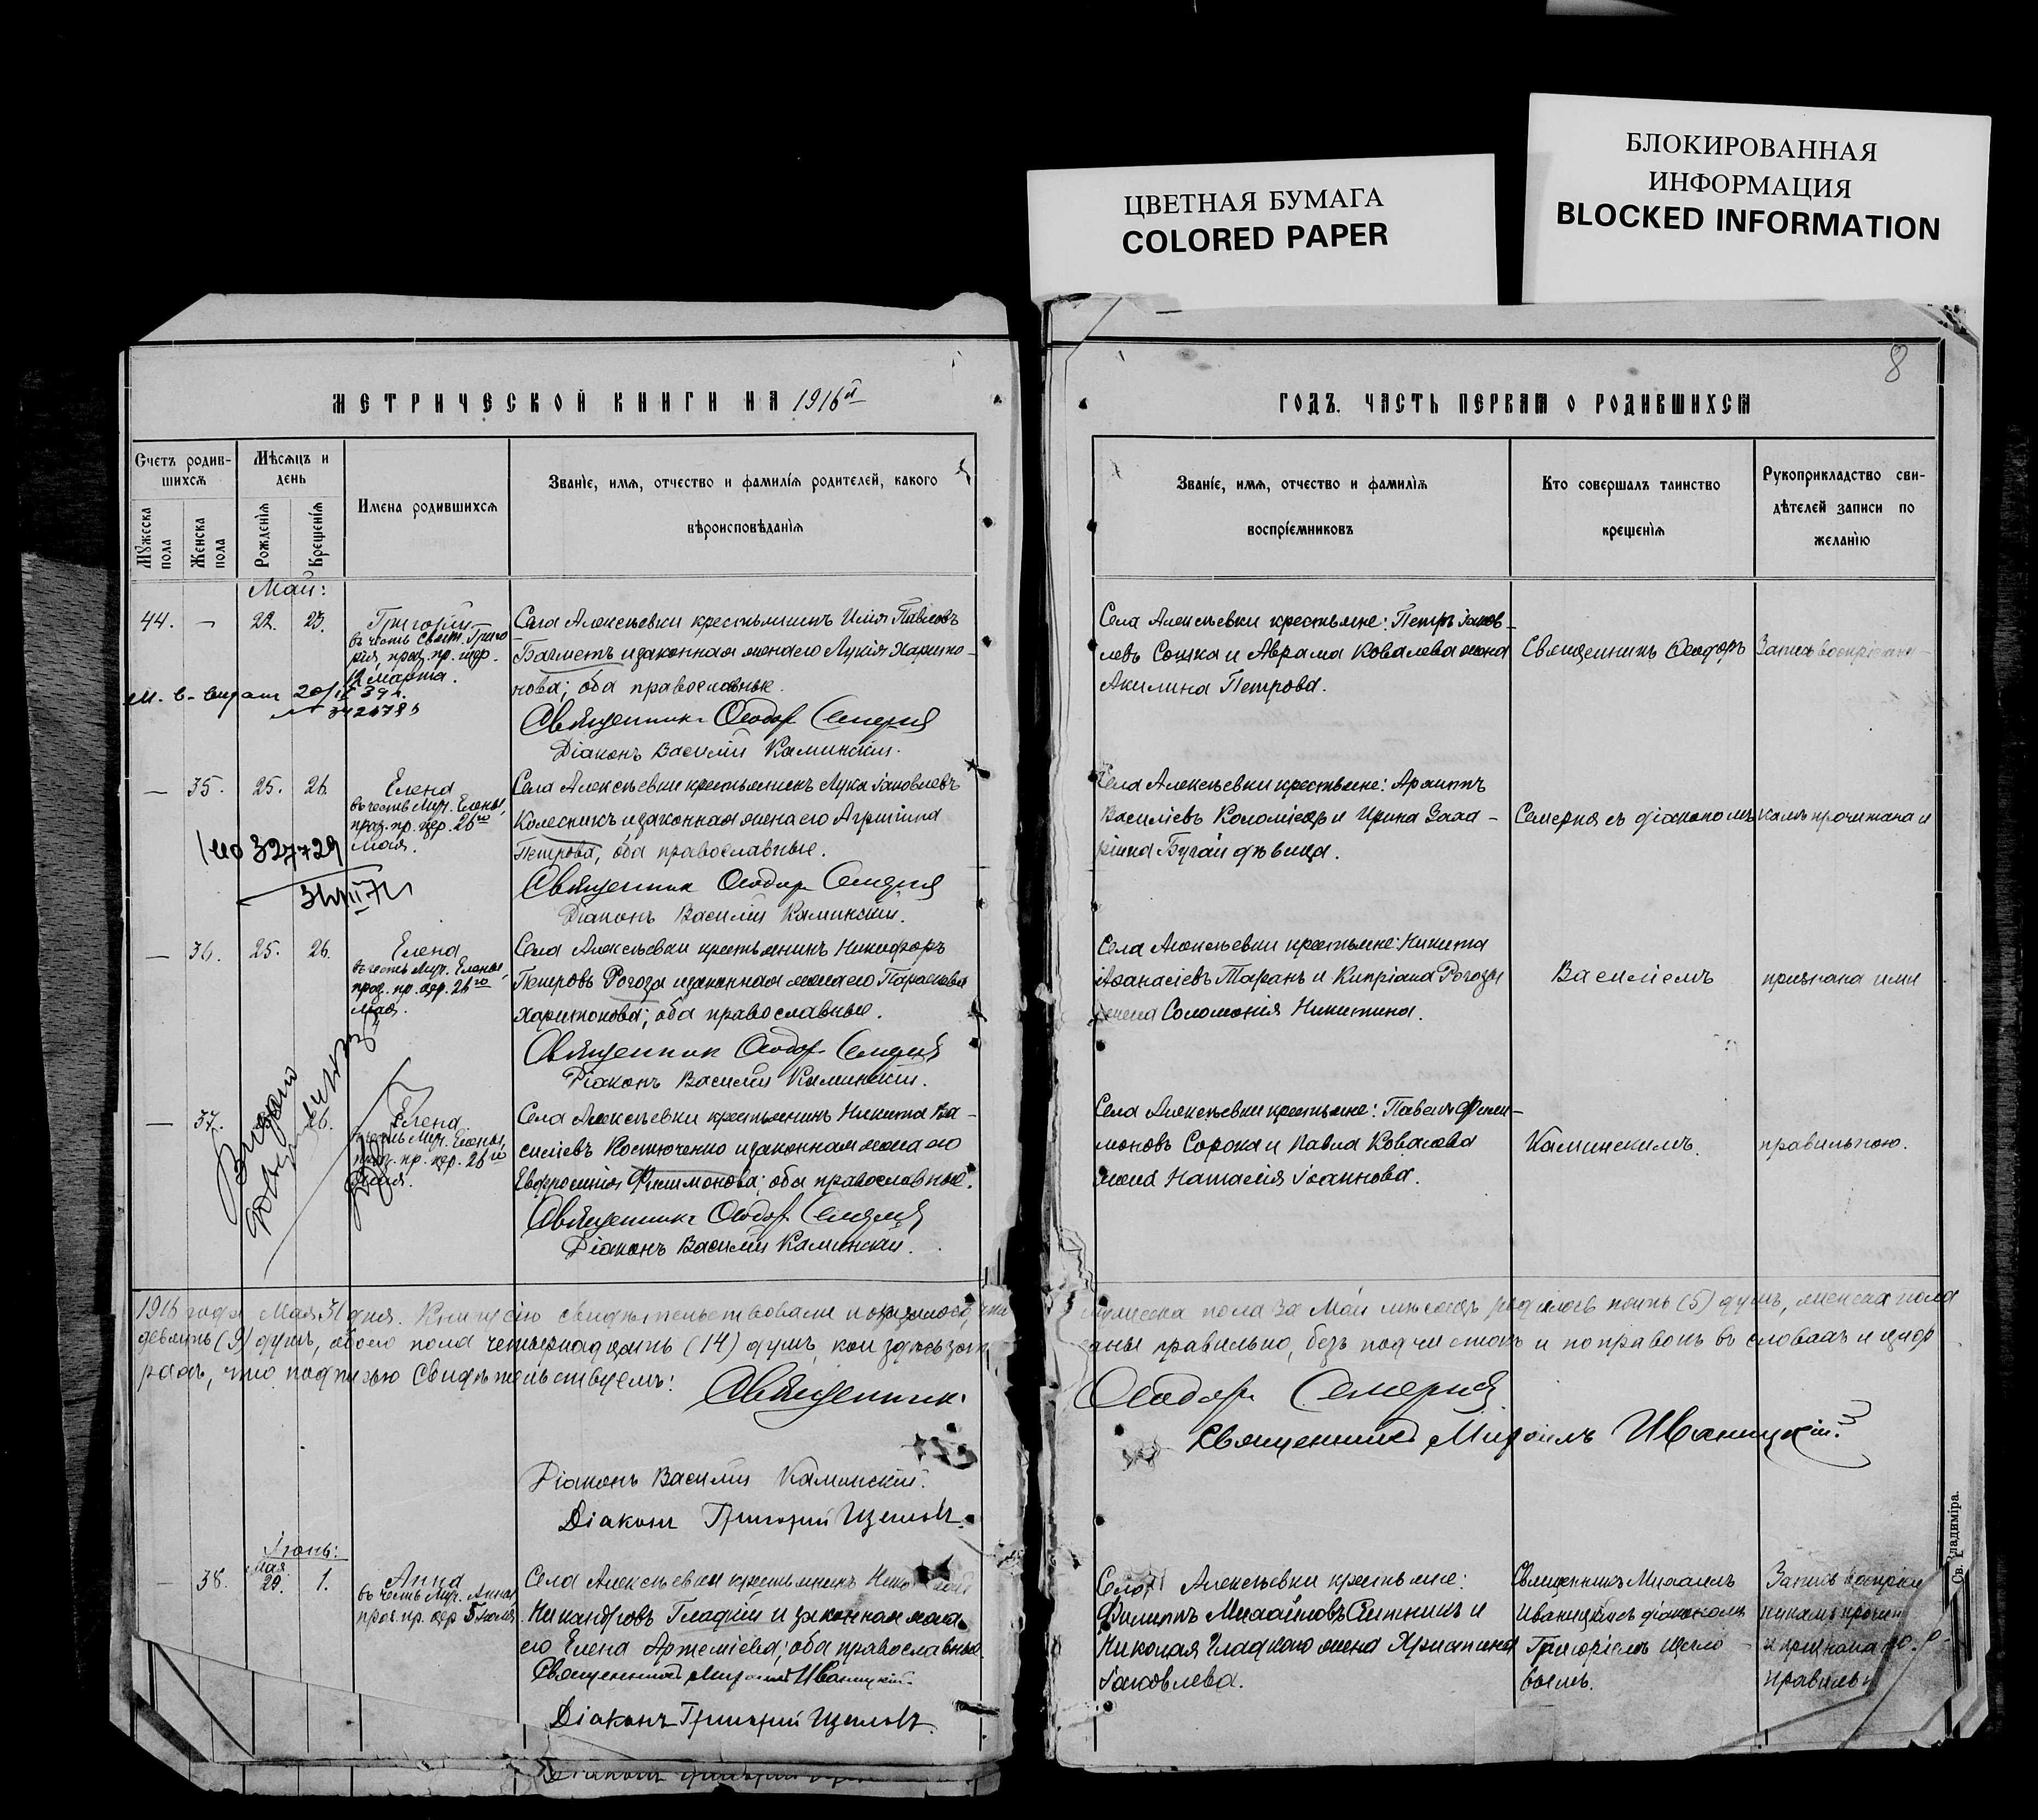 ЦВЕТНАЯ БУМАГА
COLORED PAPER
БЛОКИРОВАННАЯ
ИНФОРМАЦИЯ
BLOCKED INFORMATION
8
МЕТРИЧЕСКОЙ КНИГИ НА 1916й
Счетъ родив-
шихся
Мѣсяцъ и
день
Имена родившихся
Званіе, имя, отчество и фамилія родителей, какого
вѣроисповѣданія
Мужеска
пола
Женска
пола
Рожденія
Крещенія
Май:
44. — 22. 23.
Григорій
въ честь Свят. Григо
рія, праз. пр. цер.
12 марта.
Села Алексѣевки крестьянинъ Илія Павловъ
Багметъ и законная жена его Лукія Харито-
нова; оба православные.
Священникъ Ѳеодоръ Семерня
Діаконъ Василій Каминскій.
— 35. 25. 26.
Елена
въ честь Муч. Елены,
праз. пр. цер. 26го
мая.
327729
Села Алексѣевки крестьянинъ Лука Іаковлевъ
Колесникъ и законная жена его Агрипина
Петрова; оба православные.
Священникъ Ѳеодоръ Семерня
Діаконъ Василій Каминскій.
— 36. 25. 26.
Елена
въ честь Муч. Елены,
праз. пр. цер. 26го
мая.
Села Алексѣевки крестьянинъ Никифоръ
Петровъ Рогоза и законная жена его Параскева
Харитонова; оба православные.
Священникъ Ѳеодоръ Семерня
Діаконъ Василій Каминскій.
— 37. 26.
Елена
Муч. Елены,
праз. пр. цер. 26го
мая.
Выдано
Села Алексѣевки крестьянинъ Никита Ва-
силіевъ Костюченко и законная жена его
Евфросинія Филимонова; оба православные.
Священникъ Ѳеодоръ Семерня
Діаконъ Василій Каминскій.
1916 года Мая 31 дня. Книгу сію свидѣтельствовали и оказалось, что
девять (9) душъ, обоего пола четырнадцать (14) душъ, кои здѣсь запи
рахъ, что подписью свидѣтельствуемъ: Священникъ
Діаконъ Василій Каминскій.
Діаконъ Григорій Щеголевъ.
Іюнь:
Мая
— 38. 29. 1.
Анна
въ честь Муч. Анны,
праз. пр. цер. 5 іюля
Села Алексѣевки крестьянинъ
Никандровъ Гладкій и законная жена
его Елена Артеміева; оба православные.
Священникъ Михаилъ Иваницкій.
Діаконъ Григорій Щеголевъ.
ГОДЪ. ЧАСТЬ ПЕРВАЯ О РОДИВШИХСЯ
Званіе, имя, отчество и фамилія
воспріемниковъ
Кто совершалъ таинство
крещенія
Рукоприкладство сви-
дѣтелей записи по
желанію
Села Алексѣевки крестьяне: Петръ Іаков-
левъ Сошка и Аврама Ковалева жена
Акилина Петрова.
Священникъ Ѳеодоръ
Запись воспріемни-
Села Алексѣевки крестьяне:
Василіевъ Коломіецъ и Ирина Заха-
ріина Бугай дѣвица.
Семерня съ діакономъ
камъ прочитана и
Села Алексѣевки крестьяне: Никита
Аѳанасіевъ Таранъ и Кипріана Рогозы
жена Соломонія Никитина.
Василіемъ
признана ими
Села Алексѣевки крестьяне: Павелъ Фили-
моновъ Сорока и Павла Ковалева
жена Наталія Іоаннова.
Каминскимъ.
правильною.
мужеска пола за Май мѣсяцъ родилось пять (5) душъ, женска пола
саны правильно, безъ подчистокъ и поправокъ въ словахъ и циф
Ѳеодоръ Семерня
Священникъ Михаилъ Иваницкій.
Села Алексѣевки крестьяне:
Филиппъ Михайловъ Ситникъ и
Николая Гладкаго жена Христина
Іаковлева.
Священникъ Михаилъ
Иваницкій съ діакономъ
Григоріемъ Щего-
вымъ.
Запись воспріем
никамъ прочит
и признана
правильн
Владиміра.
Св.